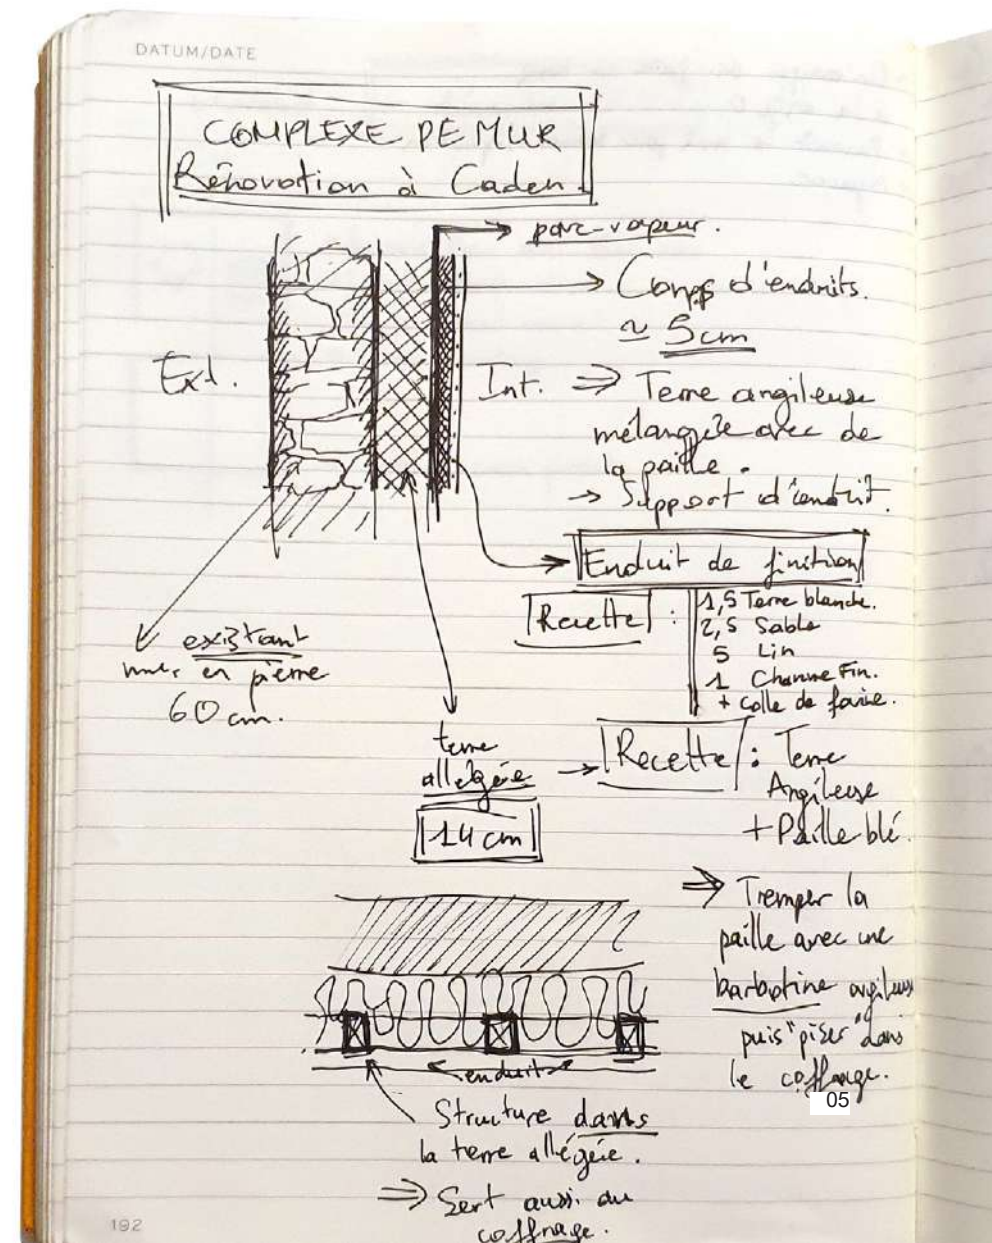 DATUM/DATE
COMPLEXE DE MUR
Rénovation à Caden.
pare-vapeur.
Corps d'enduits.
≈ 5cm
Ext.
Int. ⇒ Terre argileuse
mélangée avec de
la paille.
→ Support d'enduit.
Enduit de finition
Recette :
1,5 Terre blanche.
2,5 Sable
5 Lin
1 Chanvre Fin.
+ Colle de farine.
existant
mur en pierre
60 cm.
terre
allégée → Recette : Terre
14 cm
Argileuse
+ Paille blé.
⇒ Tremper la
paille avec une
barbotine argileuse
puis "piser" dans
le coffrage.
05
enduit
Structure dans
la terre allégée.
⇒ Sert aussi au
coffrage.
192